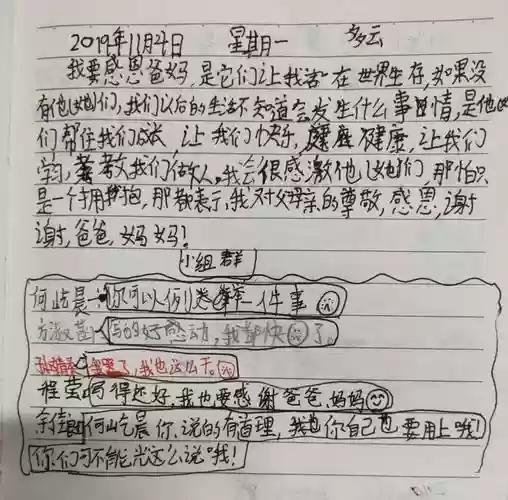 2019年11月4日 星期一 多云
我要感恩爸妈,是它们让我活在世界生存,如果没
有他(她)们,我们以后的生活不知道会发生什么事情,是他
们帮住我们成长,让我们快乐,健康,让我们
学习,教我们做人,我会很感激他(她)们,那怕只
是一个拥抱,那都表示,我对父母亲的尊敬,感恩,谢
谢,爸爸,妈妈!
小组群
何屹晨 你可以例举一件事
写的好感动,我都快了。
我哭了,我也这么干。
程莹 写得还好,我也要感谢爸爸,妈妈
何屹晨你说的有道理,我你自己也要用上哦!
你们可不能光这么说哦!